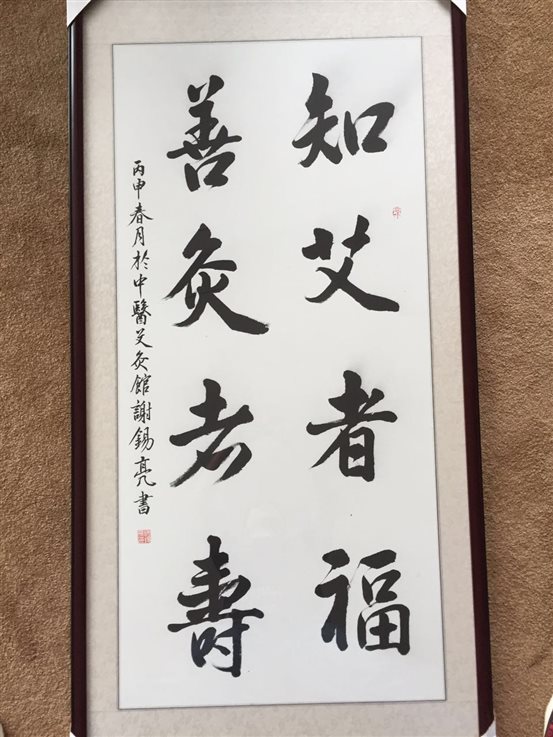 知艾者福
善灸者壽
丙申春月於中醫艾灸館謝錫亮書